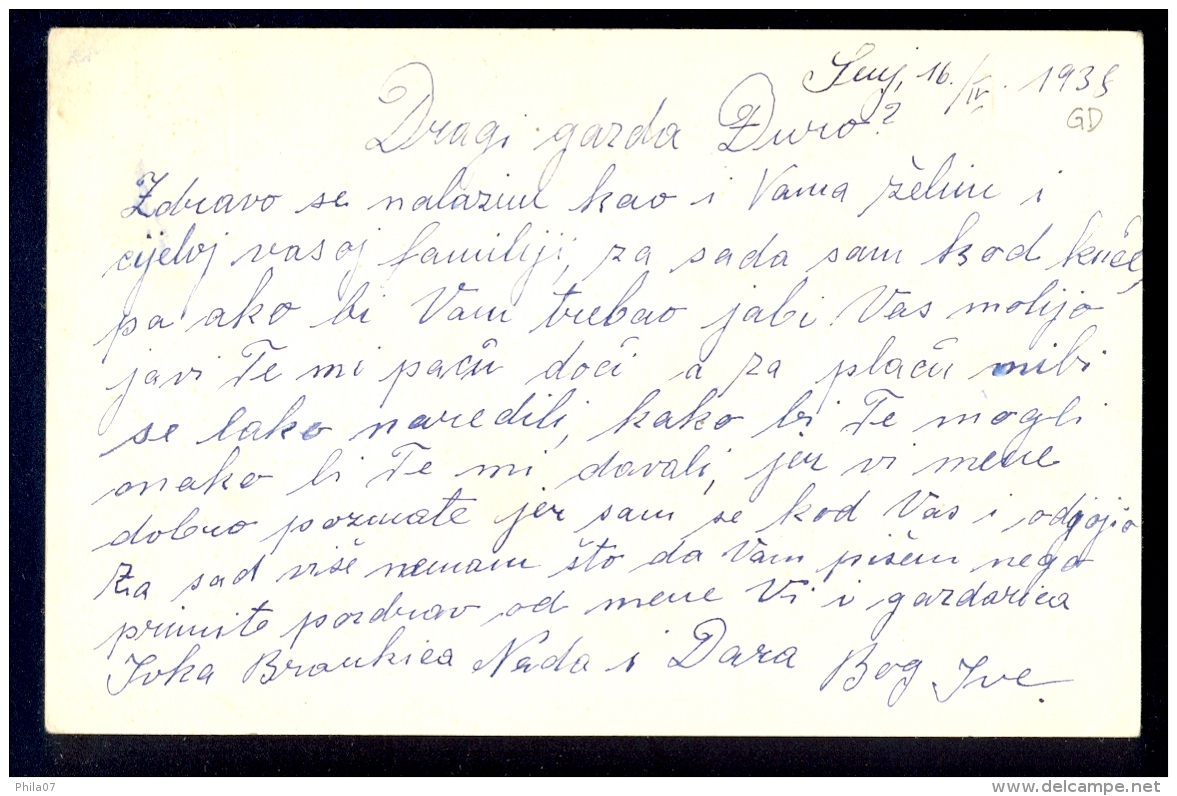 Senj, 16./IV. 1938
GD
Dragi gazda Đuro?
Zdravo se nalazim kao i Vama želim i
cijeloj vasoj familiji, za sada sam kod kuće,
pa ako bi Vam trebao jabi Vas molijo
javi Te mi paću doći a za plaću mibi
se lako naredili, kako bi Te mogli
onako bi Te mi davali, jer vi mene
dobro poznate jer sam se kod Vas i odgojio
Za sad više nemam što da Vam pišem nego
primite pozdrav od mene Vi i gazdarica
Ivka Brankica Nada i Dara Bog Ive.
Phila07
delcampe.net